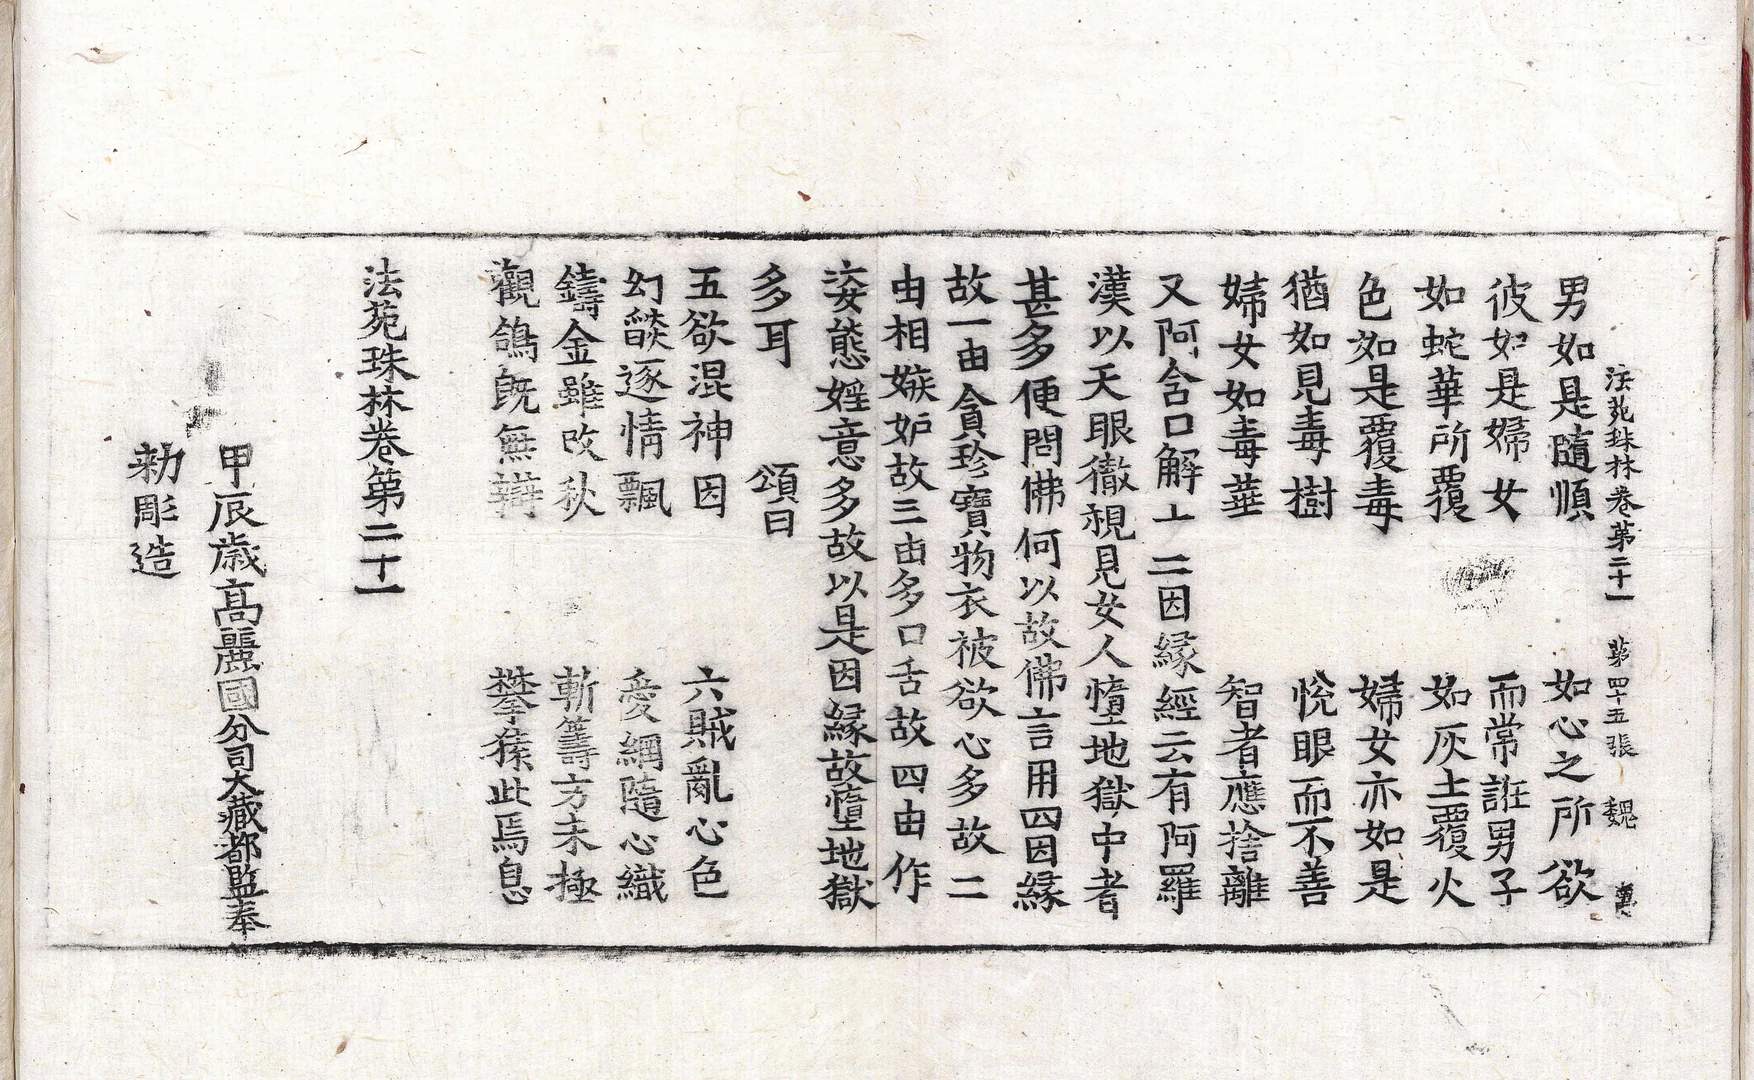 法苑珠林卷第二十一 第四十五張 魏
男如是隨順 如心之所欲
彼如是婦女 而常誑男子
如蛇華所覆 如灰土覆火
色如是覆毒 婦女亦如是
猶如見毒樹 悅眼而不善
婦女如毒華 智者應捨離
又阿含口解十二因緣經云有阿羅
漢以天眼徹視見女人墮地獄中者
甚多便問佛何以故佛言用四因緣
故一由貪珍寶物衣被欲心多故二
由相嫉妬故三由多口舌故四由作
姿態婬意多故以是因緣故墮地獄
多耳 頌曰
五欲混神因 六賊亂心色
幻燄逐情飄 愛網隨心織
鑄金雖改秋 斬籌方未極
觀鴿既無辯 攀猨此焉息
法苑珠林卷第二十一
甲辰歲高麗國分司大藏都監奉
勑彫造